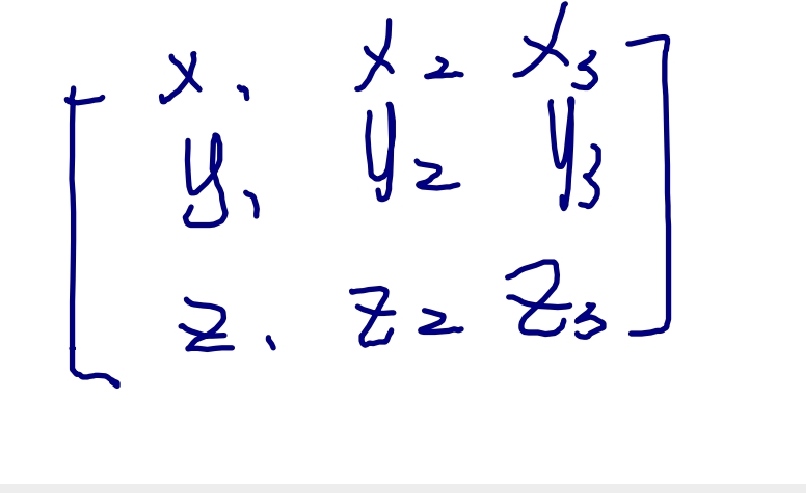 x₁ x₂ x₃
y₁ y₂ y₃
z₁ z₂ z₃